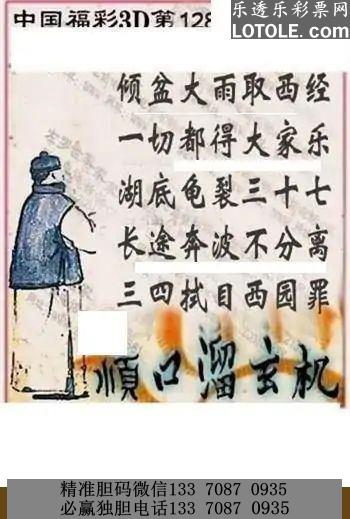 中国福彩3D第128
乐透乐彩票网
LOTOLE.COM
倾盆大雨取西经
一切都得大家乐
湖底龟裂三十七
长途奔波不分离
三四拭目西园罪
顺口溜玄机
精准胆码微信133 7087 0935
必赢独胆电话133 7087 0935